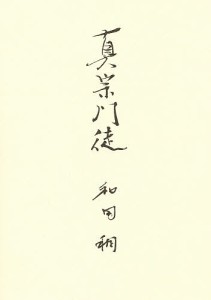 真宗门徒
和田稠